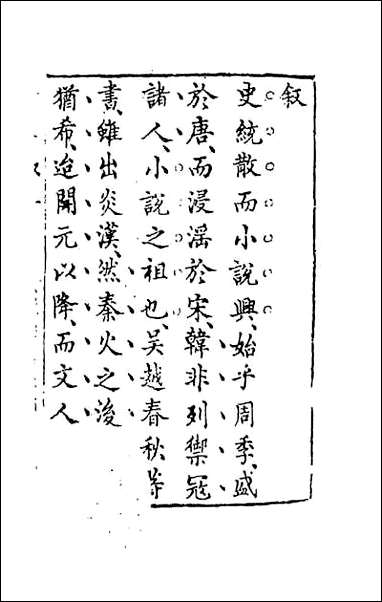 叙
史統散而小說興始乎周季盛
於唐而浸淫於宋韓非列禦冦
諸人小說之祖也吳越春秋等
書雖出炎漢然秦火之後著
猶希迨開元以降而文人